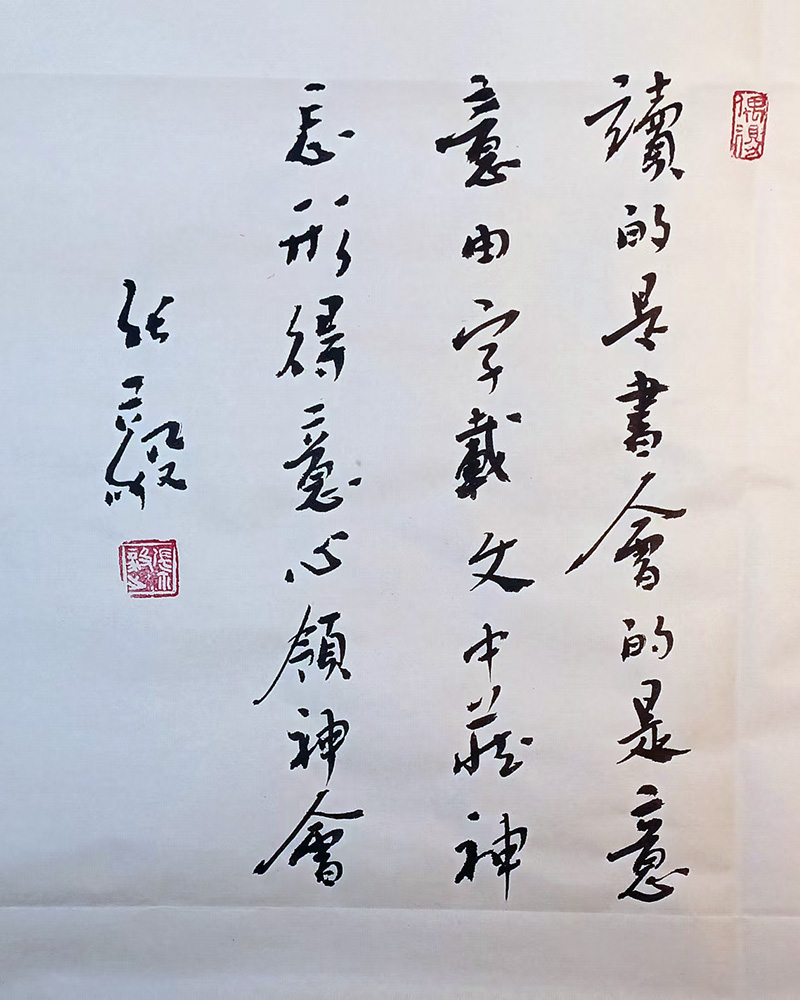 偶得
讀的是書會的是意
意由字載文中藏神
忘形得意心領神會
张